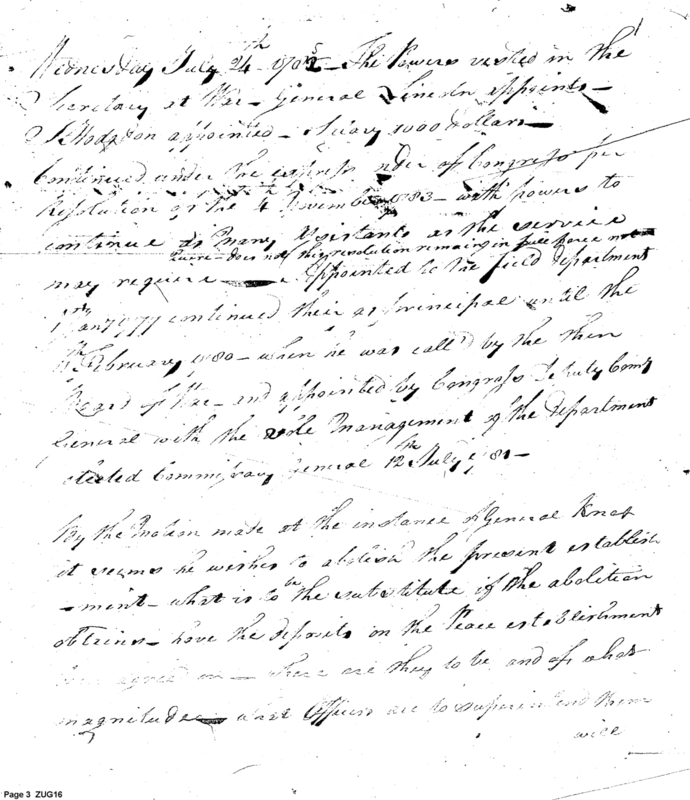 Wednesday July 24th 1785 — The Powers vested in the
Secretary at War — General Lincoln appoints —
S. Hodgson appointed — Salary 1000 Dollars —
Continued under the express order of Congress per
Resolution of the 4 November 1783 — with powers to
continue as many Assistants as the service
does not this resolution remains in full force
may require — appointed to the field department
1st Jany 1777 continued their as principal until the
February 1780 — when he was call'd by the then
Board of War — and appointed by Congress Deputy Comy
General with the sole Management of the Department
elected Commissary General 12th July 1781 —
By the Motion made at the instance of General Knox
it seems he wishes to abolish the present establish
-ment — what is to be the substitute if the abolition
obtains — have the deposits on the Peace establishment
been agreed on — where are they to be and of what
magnitude — what Officers are to superintend them
will
Page 3 ZUG16